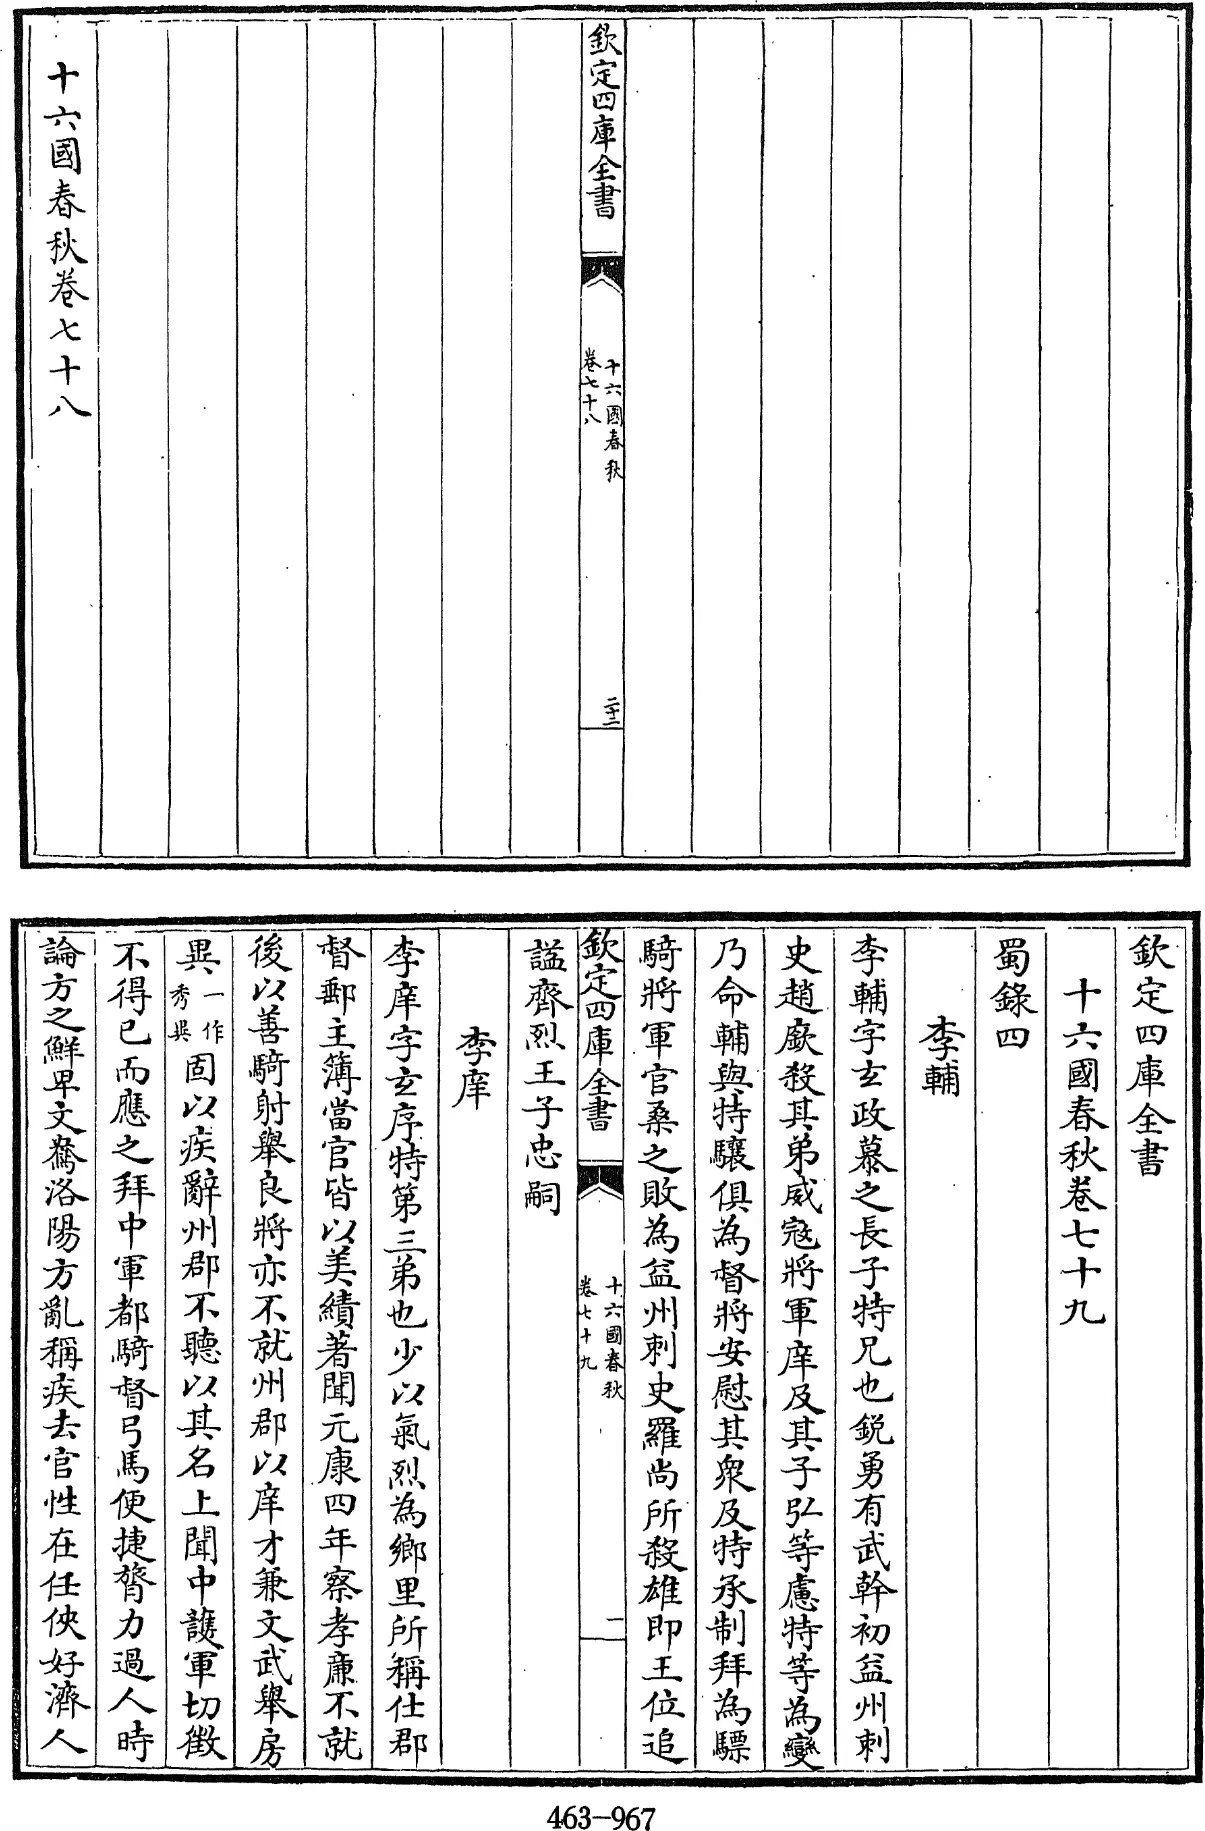 欽定四庫全書
十六國春秋
卷七十八
二十二
十六國春秋卷七十八
欽定四庫全書
十六國春秋卷七十九
蜀錄四
李輔
李輔字玄政慕之長子特兄也銳勇有武幹初益州刺
史趙廞殺其弟威寇將軍庠及其子弘等慮特等為變
乃命輔與特驤俱為督將安慰其衆及特承制拜為驃
騎將軍官桑之敗為益州刺史羅尚所殺雄即王位追
欽定四庫全書
十六國春秋
卷七十九
一
諡齊烈王子忠嗣
李庠
李庠字玄序特第三弟也少以氣烈為鄉里所稱仕郡
督郵主簿當官皆以美績著聞元康四年察孝廉不就
後以善騎射舉良將亦不就州郡以庠才兼文武舉房
異一作
秀異固以疾辭州郡不聽以其名上聞中護軍切徵
不得已而應之拜中軍都騎督弓馬便捷膂力過人時
論方之鮮卑文鴦洛陽方亂稱疾去官性在任俠好濟人
463-967